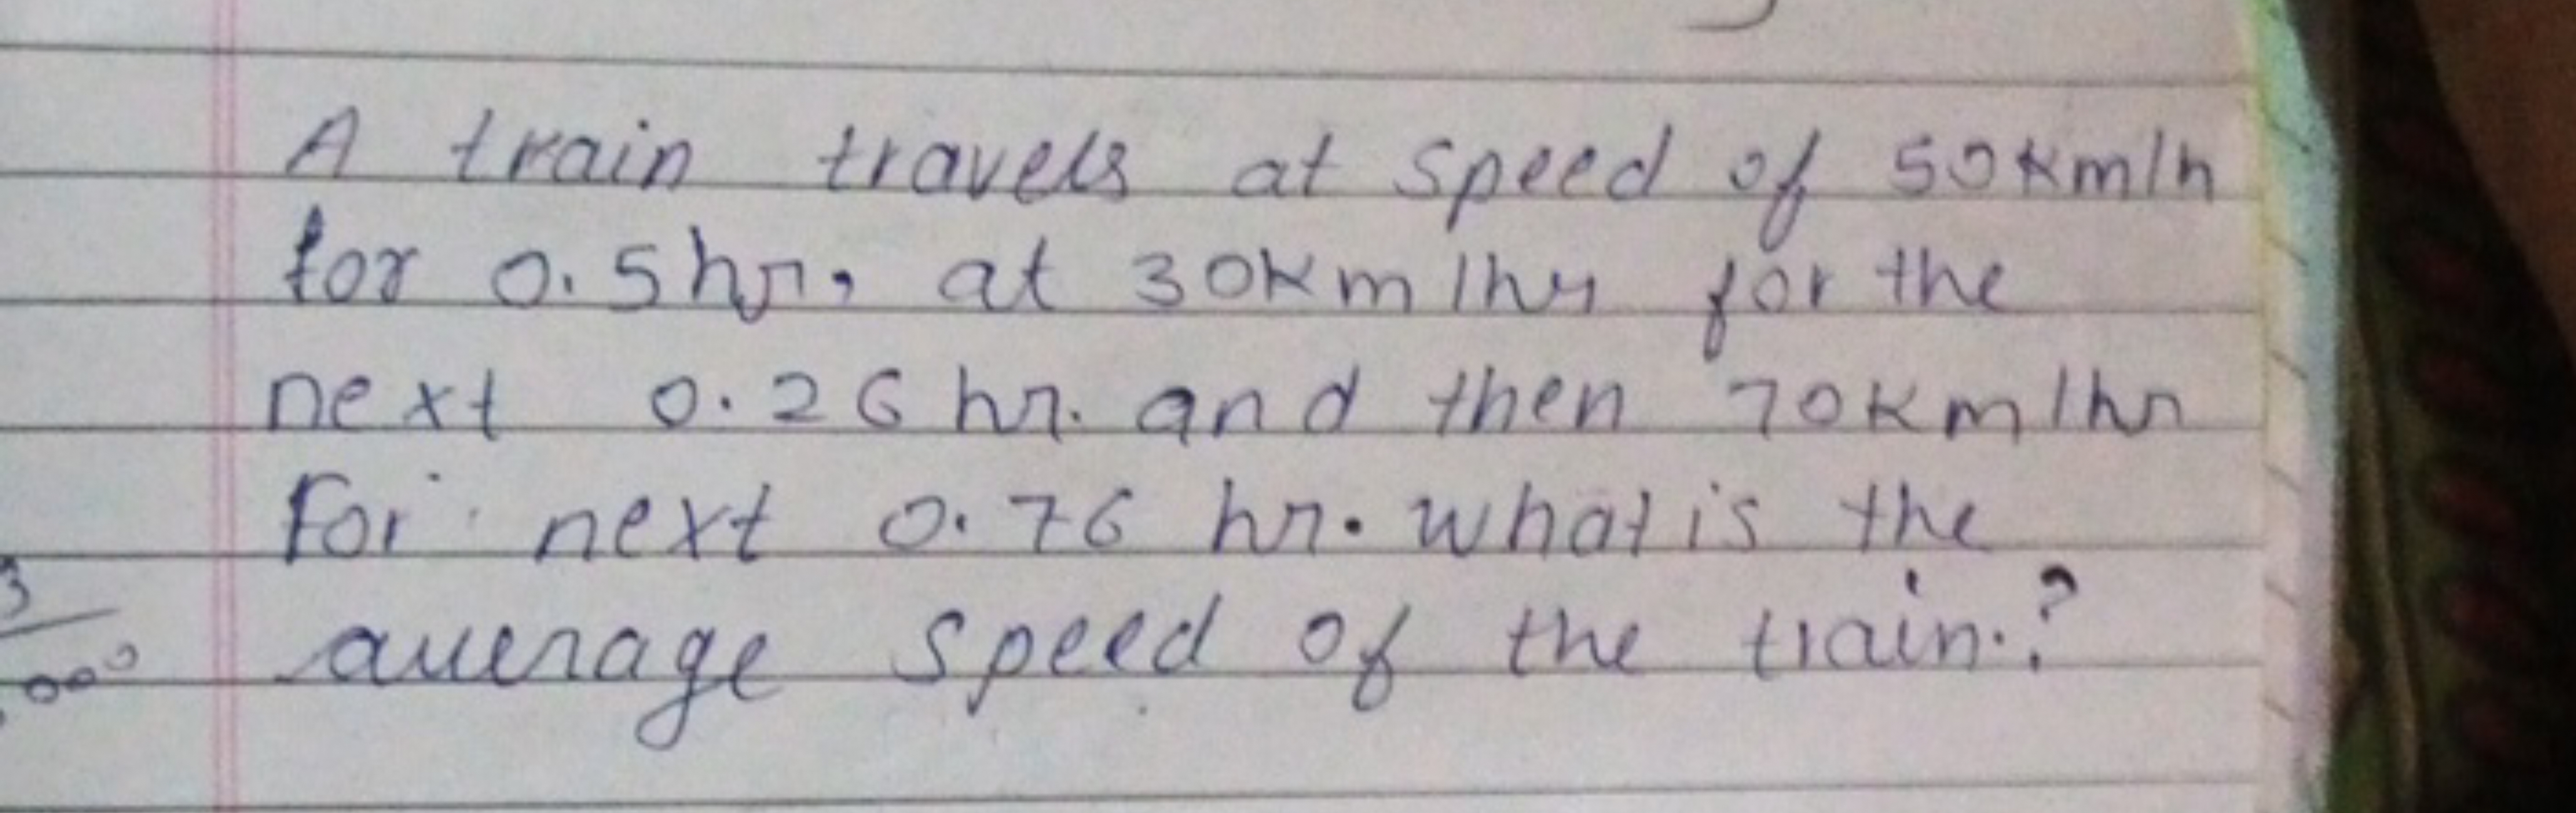 A train travels at speed of 50km/h
for 0.5hr, at 30km/hr for the
next 0.26 hr. and then 70km/hr
For next 0.76 hr. what is the
average speed of the train.?
3